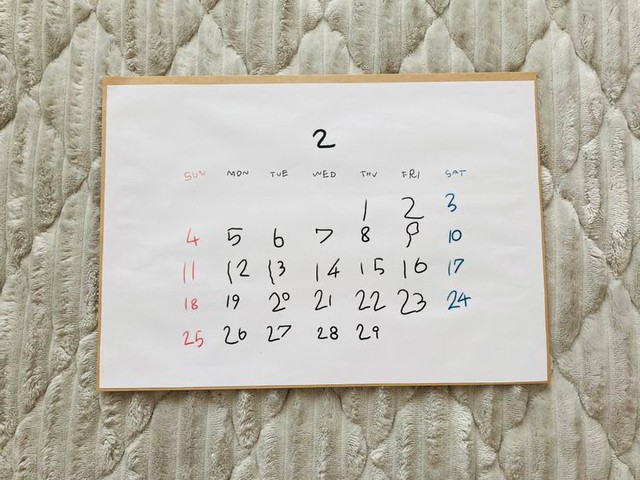 2
SUN MON TUE WED THU FRI SAT
1 2 3
4 5 6 7 8 9 10
11 12 13 14 15 16 17
18 19 20 21 22 23 24
25 26 27 28 29